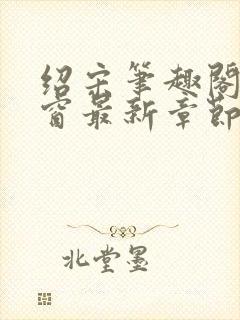 绍宋笔趣阁
窗最新章节
北堂墨